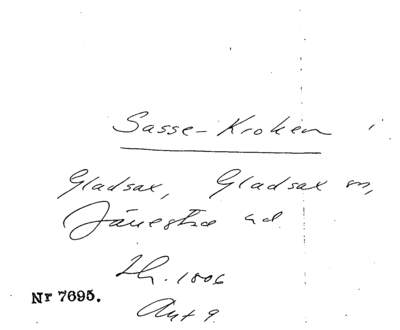 Sasse-Kroken i
Gladsax, Gladsax sn,
Järrestad hd.
Lh. 1806
Nr 7695.
Akt 9